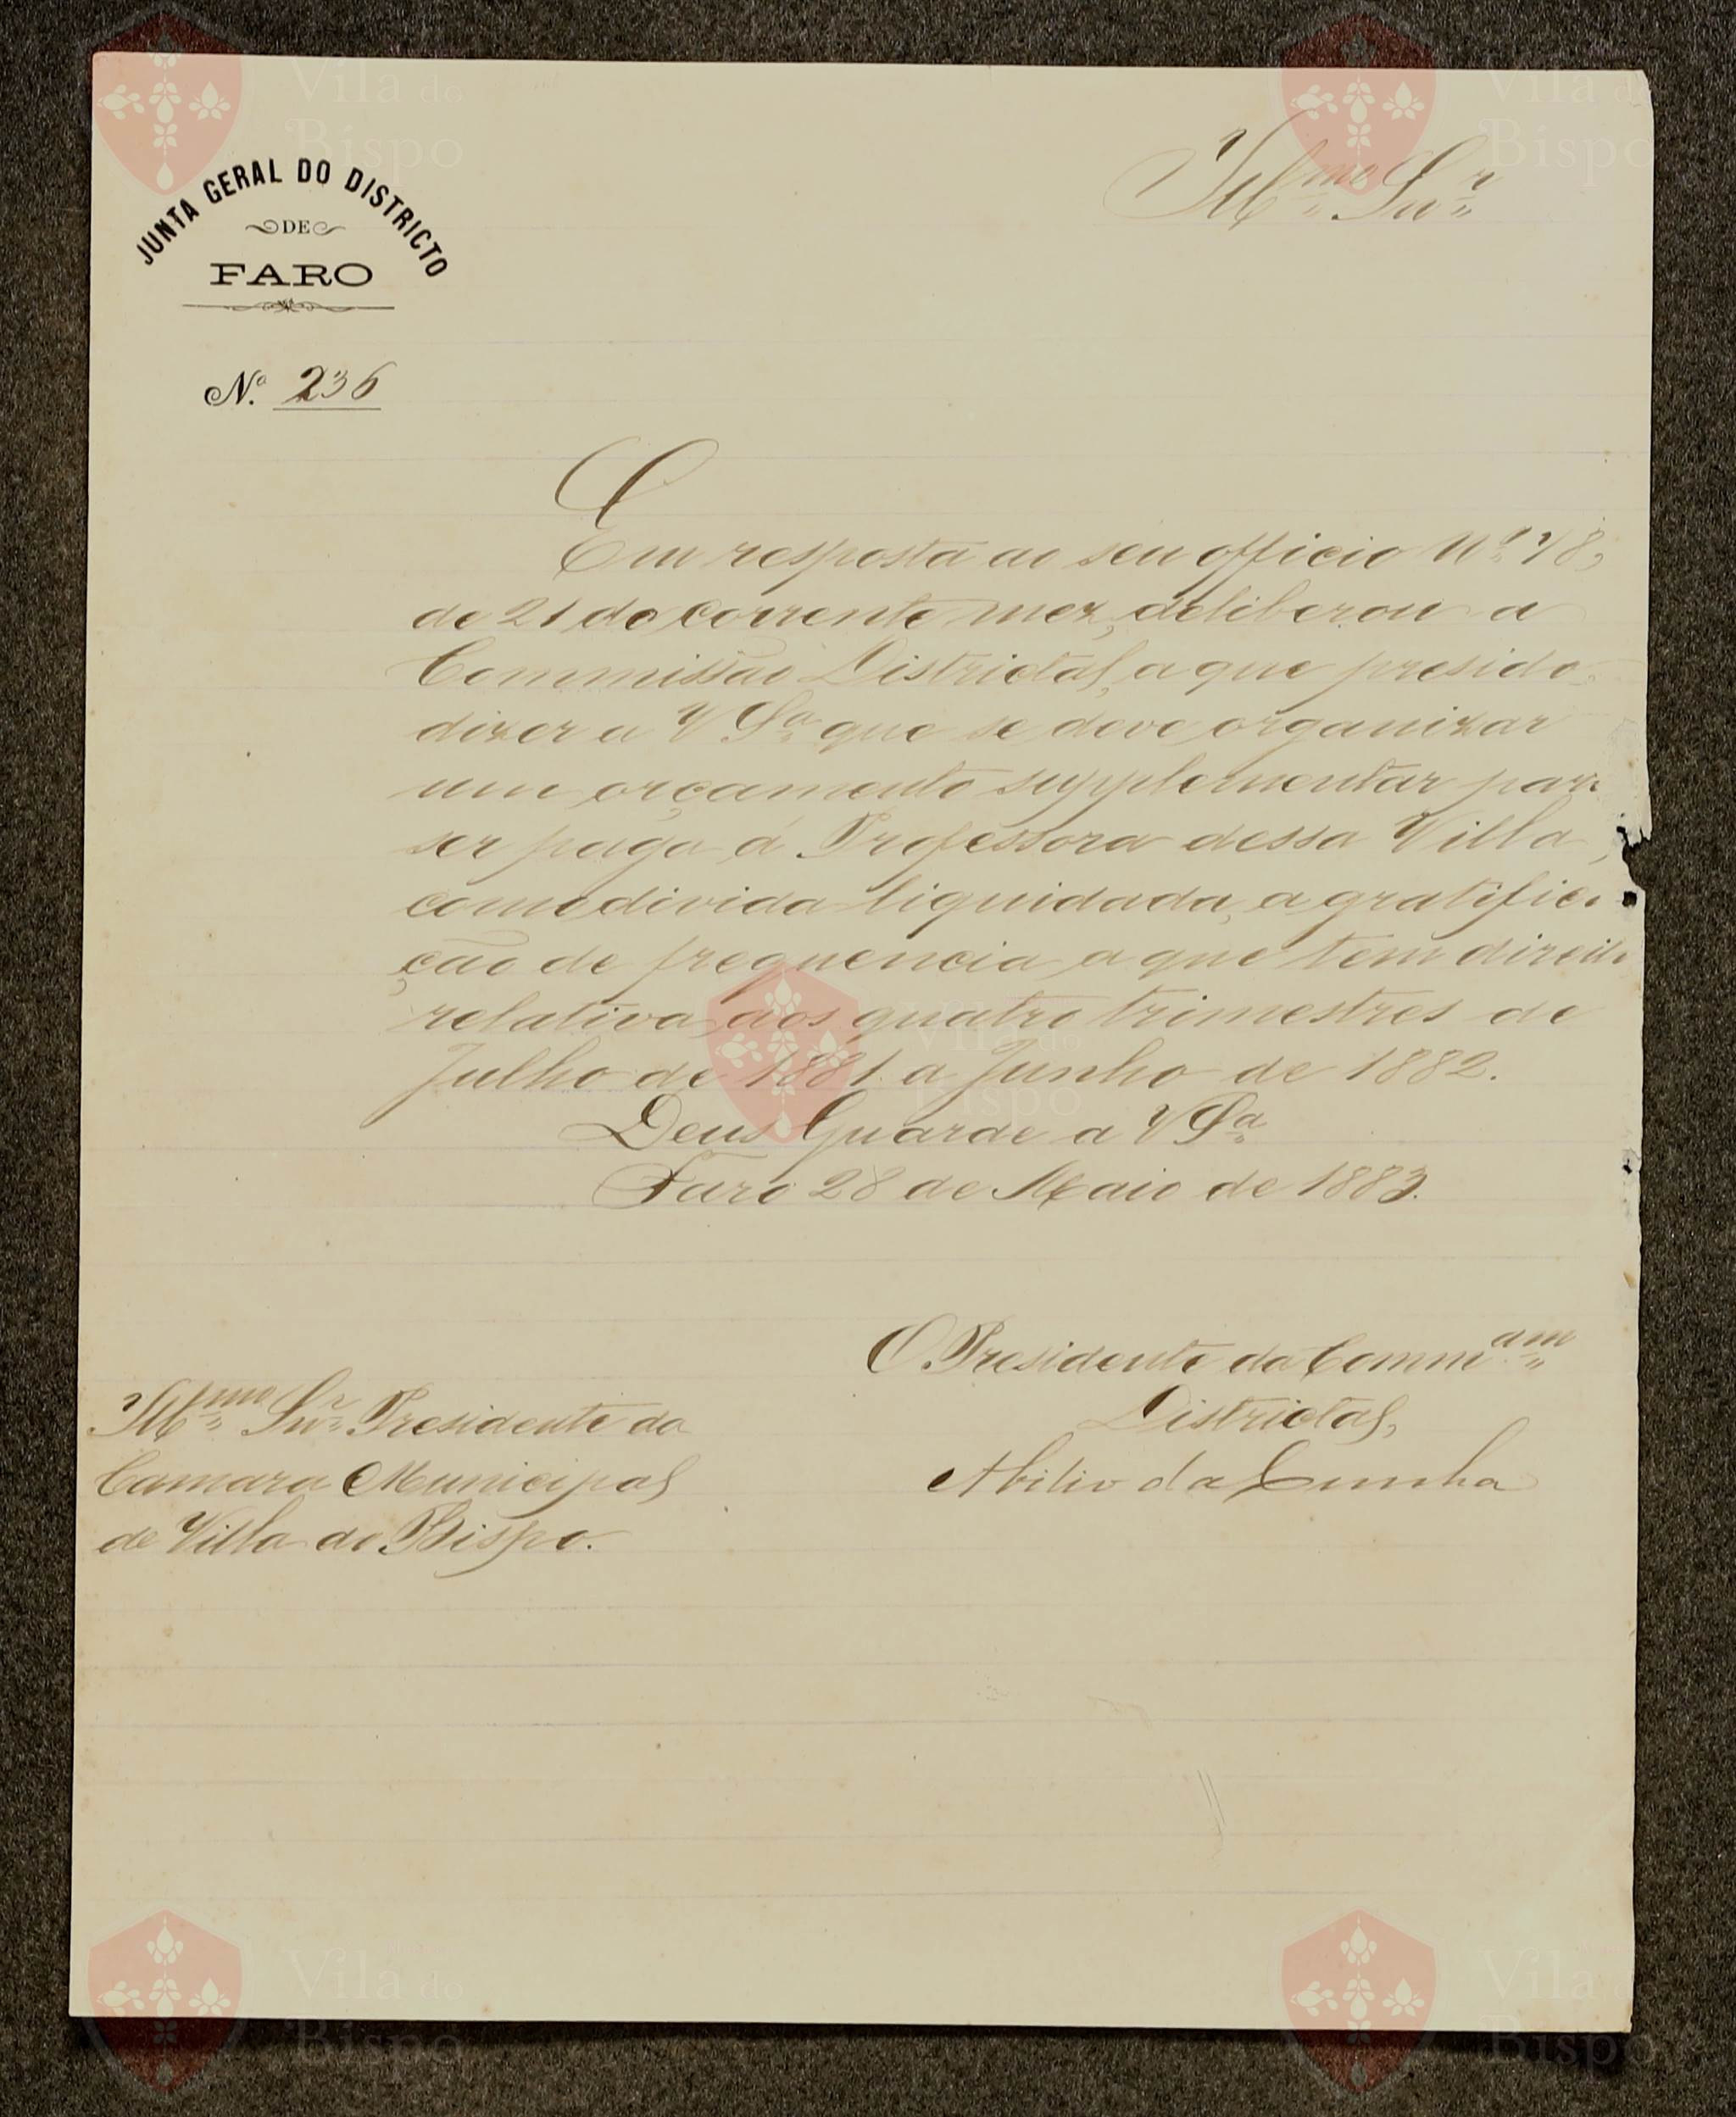 JUNTA GERAL DO DISTRICTO
DE
FARO
N.º 236
Ill.mo Sn.r
Em resposta ao seu officio Nº 78,
de 21 do corrente mez, deliberou a
Commissão Districtal, a que presido,
dizer a V Sª que se deve organizar
um orçamento supplementar para
ser paga á Professora dessa Villa,
como divida liquidada, a gratifica
ção de frequencia a que tem direito
relativa aos quatro trimestres de
Julho de 1881 a Junho de 1882.
Deus Guarde a V Sª
Faro 28 de Maio de 1883.
O Presidente da Comm.am
Districtal,
Abilio da Cunha
Ill.mo Sn.r Presidente da
Camara Municipal
de Villa do Bispo.
Vila do
Bispo
Vila do
Bispo
Vila do
Bispo
Vila do
Bispo
Vila do
Bispo